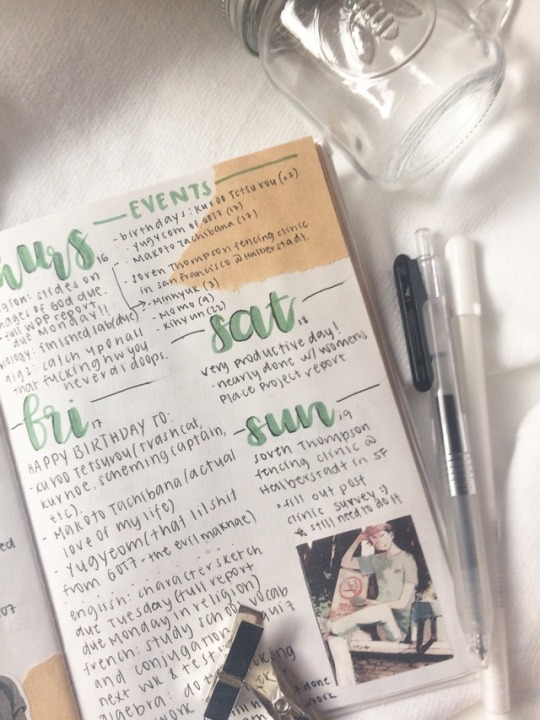 EVENTS
- birthdays: Kuroo Tetsurou (17)
- Yugyeom of GOT7 (17)
- Makoto Tachibana (17)
- Soren Thompson fencing clinic
in San Francisco @ Halberstadt.
- Minhyuk (3)
- Momo (9)
- Kihyun (22)
thurs 16
religion: slides on
images of God due.
full WPP report
due Monday!!
biology: finished lab (due)
alg 2: catch up on all
that fucking hw you
never did oops.
sat 18
very productive day!
- nearly done w/ women's
place project report
fri 17
HAPPY BIRTHDAY TO:
- Kuroo Tetsurou (trash cat,
scheming captain,
etc).
- Makoto Tachibana (actual
love of my life)
- Yugyeom (that lil shit
from GOT7 - the evil maknae)
english: character sketch
due Tuesday (full report
due Monday in religion)
french: study sch 20 vocab
and conjugation quiz
next wk & test
algebra: do
work
sun 19
Soren Thompson
fencing clinic @
Halberstadt in SF
* fill out post
clinic survey :)
* still need to do it
done
work